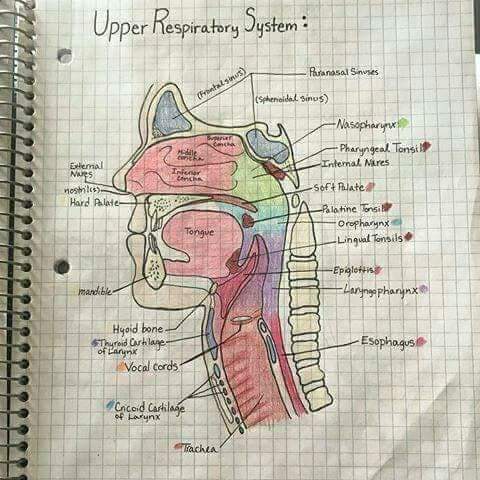 Upper Respiratory System:
Paranasal Sinuses
(Frontal sinus)
(Sphenoidal sinus)
Nasopharynx
Superior
Concha
Middle
Concha
Inferior
Concha
Pharyngeal Tonsil
Internal Nares
External
Nares
nostril(s)
Hard Palate
Soft Palate
Palatine Tonsil
Oropharynx
Lingual Tonsils
Tongue
Epiglottis
mandible
Laryngopharynx
Hyoid bone
Thyroid Cartilage
of Larynx
Esophagus
Vocal cords
Cricoid Cartilage
of Larynx
Trachea